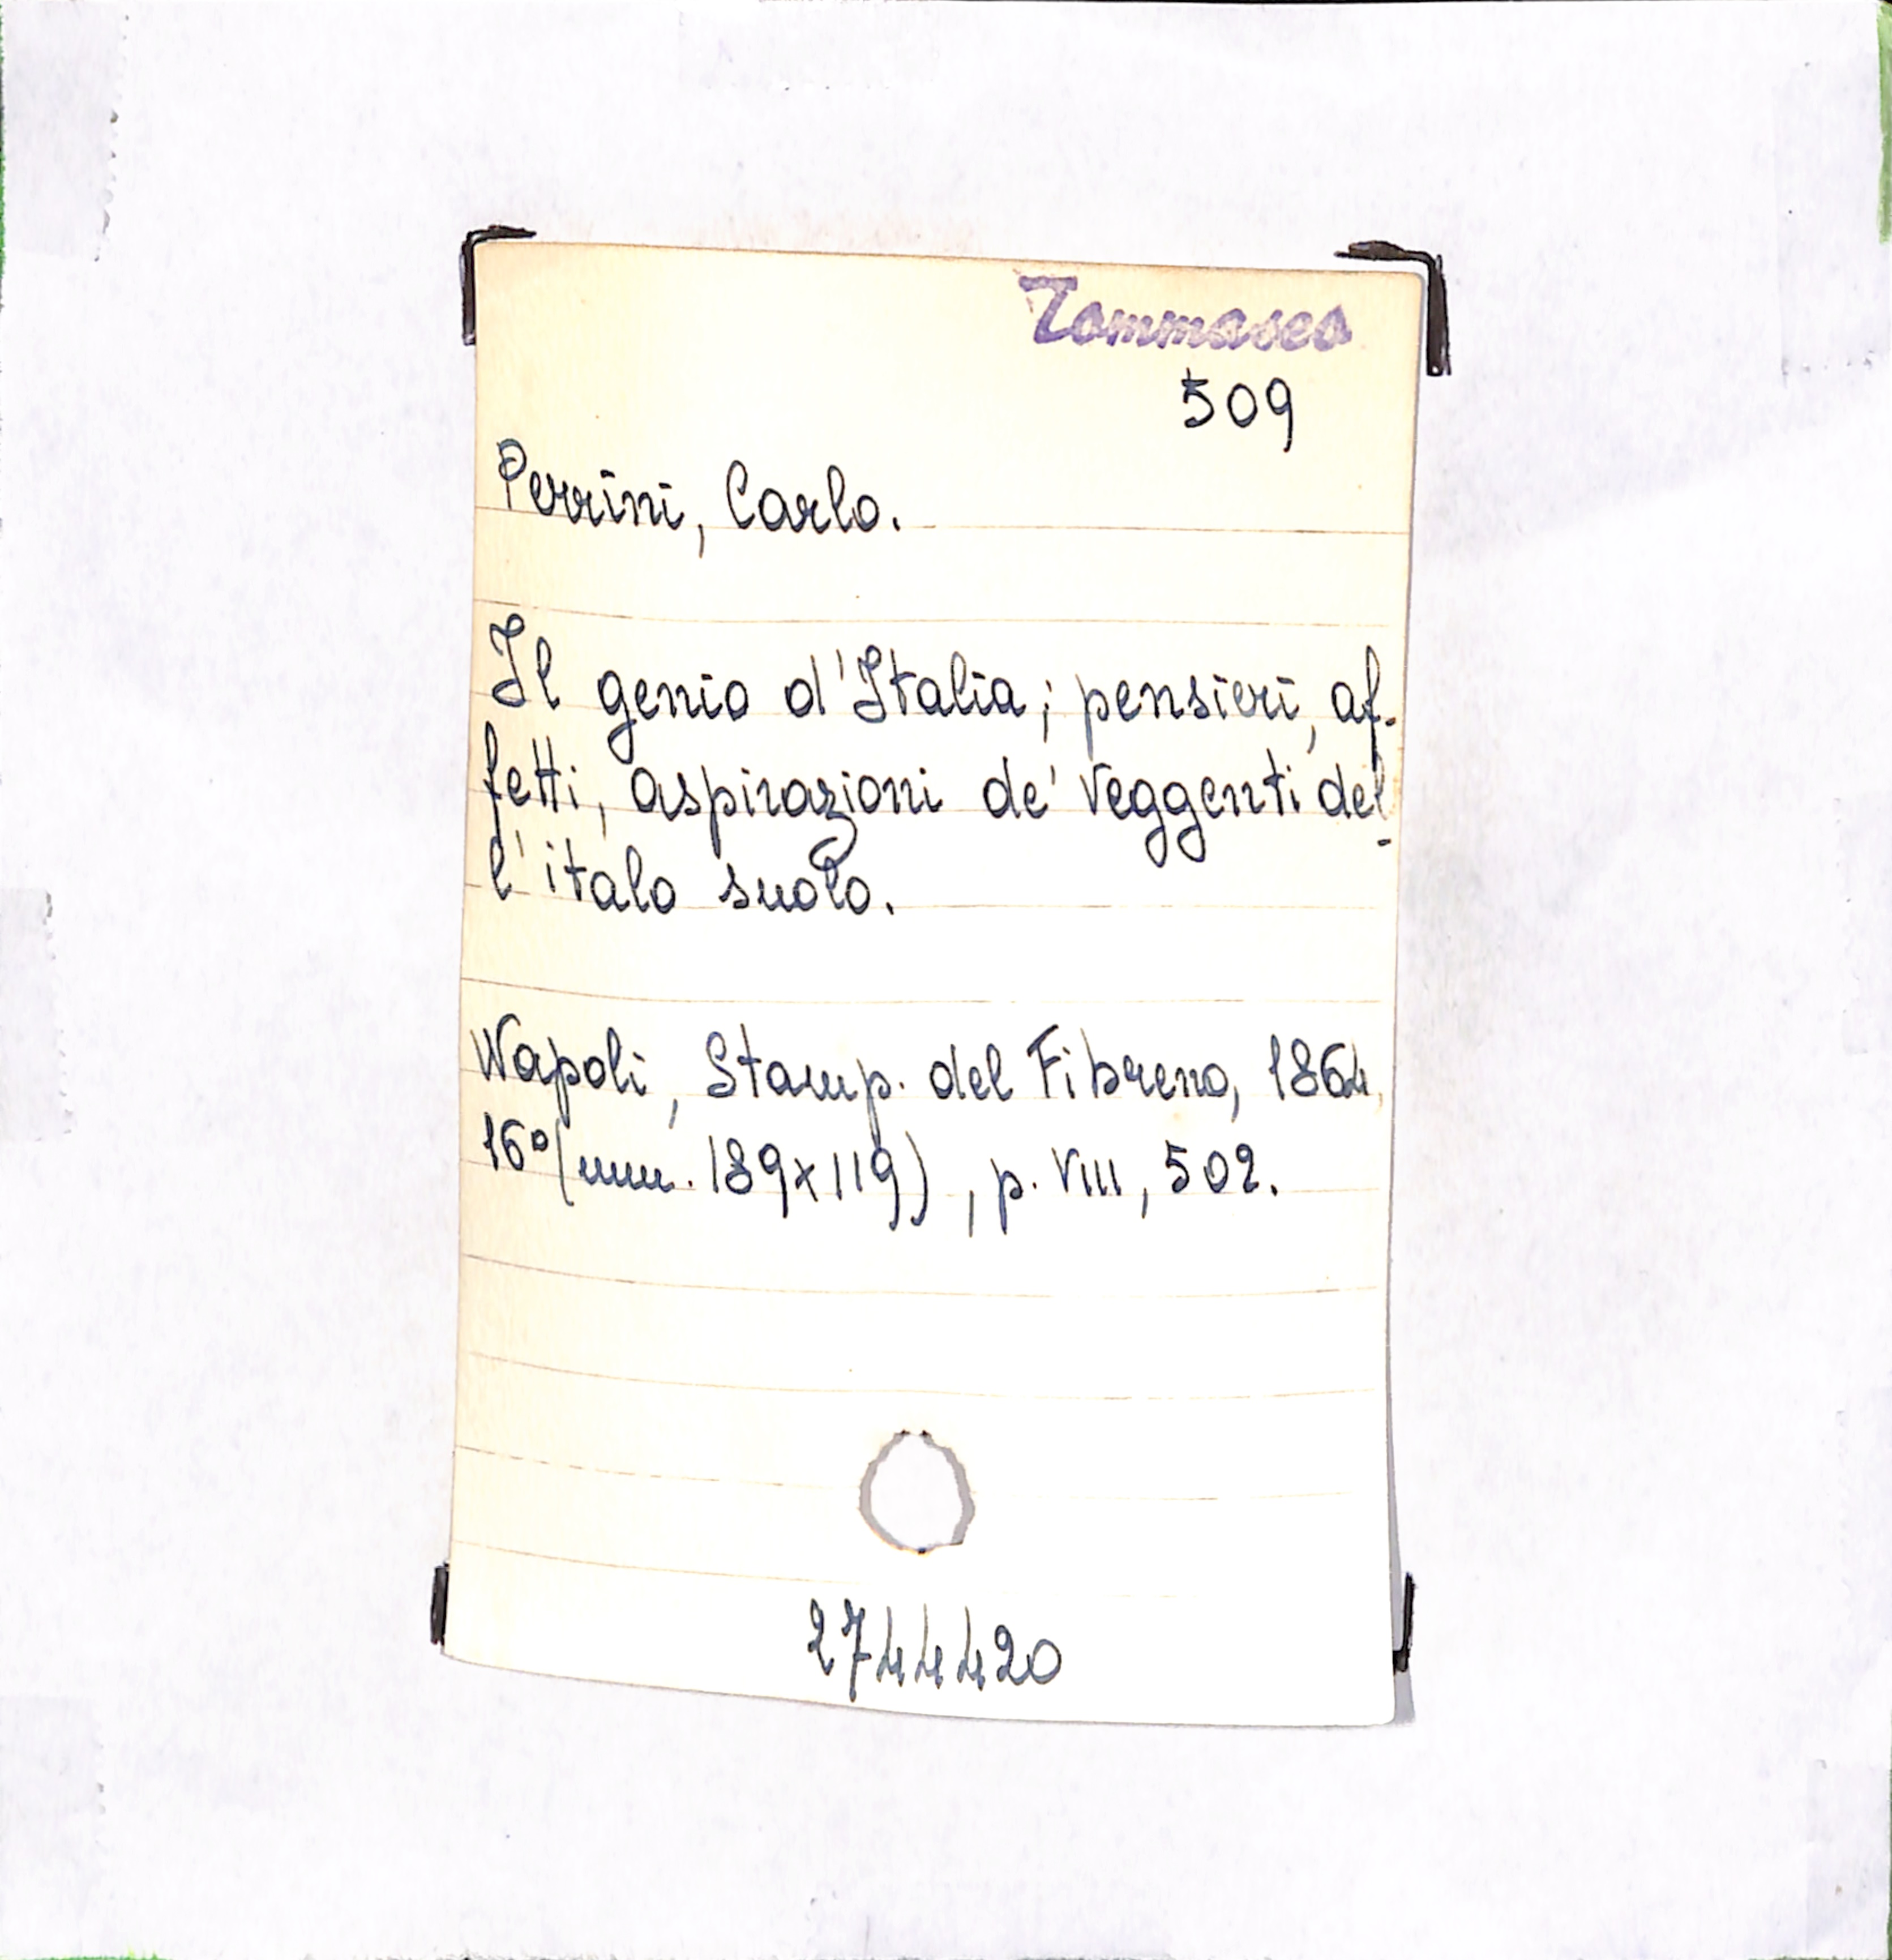 Tommaseo
509
Perrini, Carlo.
Il genio d'Italia; pensieri, af-
fetti, aspirazioni de' veggenti del-
l'italo suolo.
Napoli, Stamp. del Fibreno, 1864,
16° (mm. 189x119), p. VIII, 502.
2744420